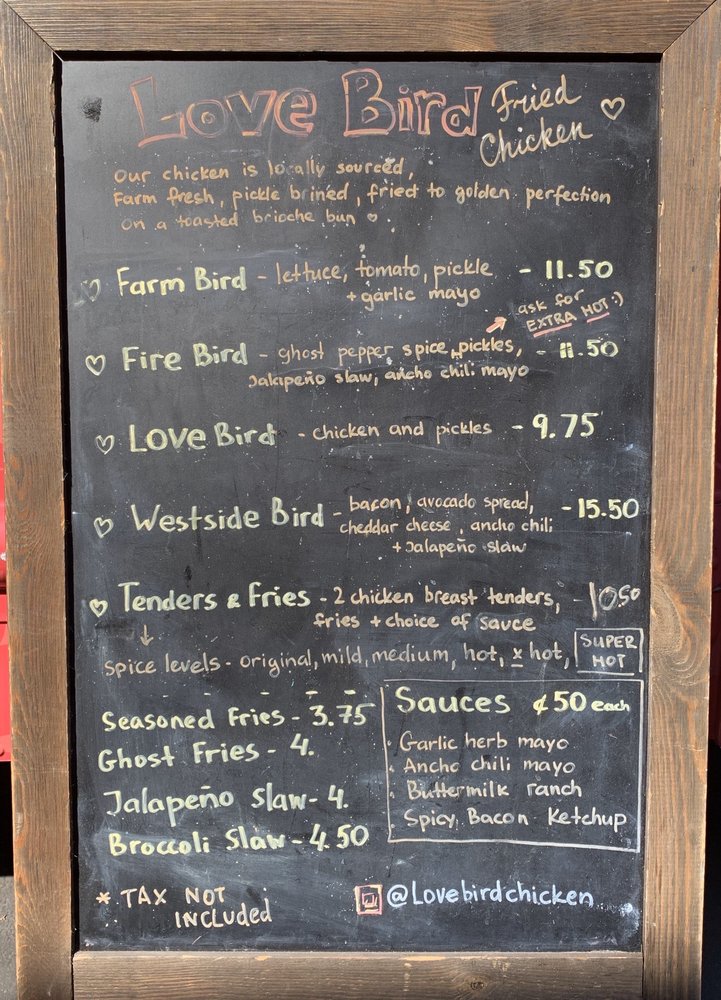 Love Bird Fried Chicken
Our chicken is locally sourced,
Farm fresh, pickle brined, fried to golden perfection
on a toasted brioche bun
Farm Bird - lettuce, tomato, pickle - 11.50
+ garlic mayo
ask for
EXTRA HOT :)
Fire Bird - ghost pepper spice, pickles, - 11.50
Jalapeño slaw, ancho chili mayo
Love Bird - chicken and pickles - 9.75
Westside Bird - bacon, avocado spread, - 15.50
cheddar cheese, ancho chili
+ Jalapeño slaw
Tenders & Fries - 2 chicken breast tenders, - 10.50
fries + choice of sauce
spice levels - original, mild, medium, hot, x hot, SUPER HOT
Seasoned Fries - 3.75
Ghost Fries - 4.
Jalapeño Slaw - 4.
Broccoli Slaw - 4.50
Sauces ¢50 each
Garlic herb mayo
Ancho chili mayo
Buttermilk ranch
Spicy Bacon Ketchup
* TAX NOT
INCLUDED
@Lovebirdchicken